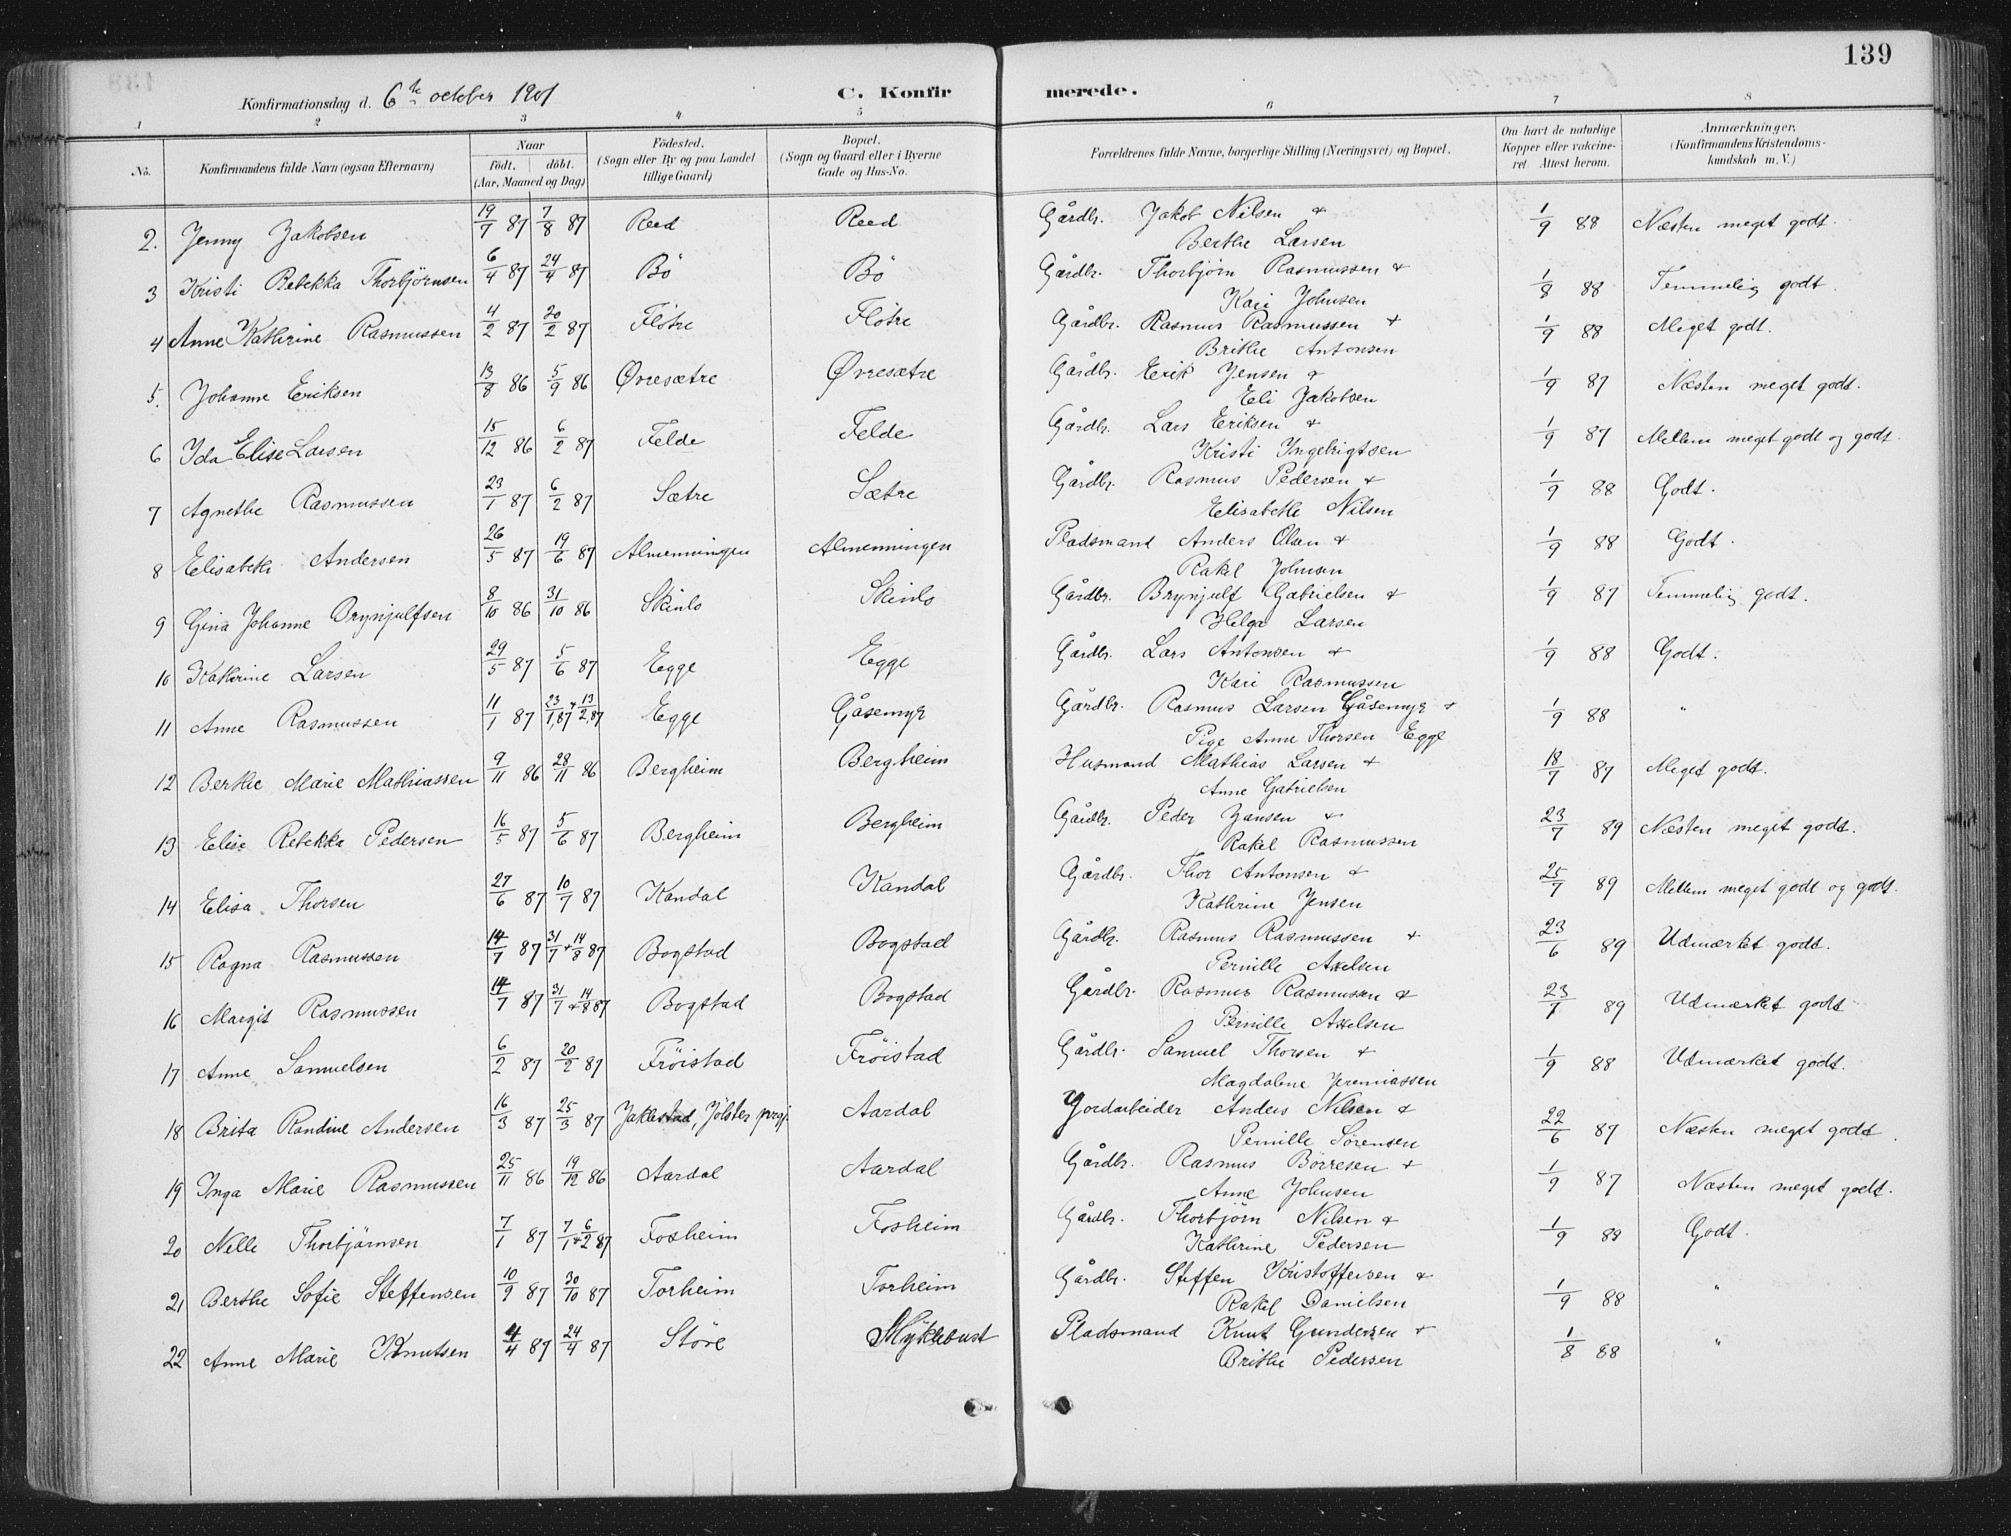 139
Konfirmationsdag d. 6te october 1901 C. Konfir merede.
1 2 3 4 5 6 7 8
No. Konfirmandens fulde Navn (ogsaa Efternavn) Naar Födt. döbt. (Aar, Maaned og Dag) Födested. (Sogn eller By og paa Landet tillige Gaard) Bopæl. (Sogn og Gaard eller i Byerne Gade og Hus-No. Forældrenes fulde Navne, borgerlige Stilling (Næringsvei) og Bopæl. Om havt de naturlige Kopper eller vakcineret. Attest herom. Anmærkninger. (Konfirmandens Kristendomskundskab m. V.)
2. Jenny Jakobsen 19/7 87 7/8 87 Reed Reed Gårdbr. Jakob Nilsen & 1/9 88 Næsten meget godt.
Berthe Larsen
3 Kristi Rebekka Thorbjørnsen 6/4 87 24/4 87 Bö Bö Gårdbr. Thorbjörn Rasmussen & 1/8 88 Temmelig godt.
Kari Johnsen
4 Anne Kathrine Rasmussen 4/2 87 20/2 87 Fløtre Fløtre Gårdbr. Rasmus Rasmussen & 1/9 88 Meget godt.
Brithe Antonsen
5. Johanne Eriksen 13/8 86 5/9 86 Øvresætre Øvresætre Gårdbr. Erik Jensen & 1/9 87 Næsten meget godt.
Eli Jakobsen
6 Ida Elise Larsen 15/12 86 6/2 87 Felde Felde Gårdbr. Lars Eriksen & 1/9 87 Mellem meget godt og godt.
Kristi Ingebrigtsen
7 Agnethe Rasmussen 23/1 87 6/2 87 Sætre Sætre Gårdbr. Rasmus Pedersen & 1/9 88 Godt.
Elisabeth Nilsen
8 Elisabeth Andersen 26/5 87 19/6 87 Almenningen Almenningen Pladsmand Anders Olsen & 1/9 88 Godt.
Rakel Johnsen
9 Gina Johanne Brynjulfsen 8/10 86 31/10 86 Skinlo Skinlo Gårdbr. Brynjulf Gabrielsen & 1/9 87 Temmelig godt.
Helga Larsen
10 Kathrine Larsen 29/5 87 5/6 87 Egge Egge Gårdbr. Lars Antonsen & 1/9 88 Godt.
Kari Rasmussen
11 Anne Rasmussen 11/1 87 23/1 87 & 13/2 87 Egge Gåsemyr Gårdbr. Rasmus Larsen Gåsemyr & 1/9 88 "
Pige Anne Thorsen Egge
12 Berthe Marie Mathiassen 9/11 86 28/11 86 Bergheim Bergheim Husmand Mathias Larsen & 18/7 87 Meget godt.
Anne Gabrielsen
13 Elise Rebekka Pedersen 16/5 87 5/6 87 Bergheim Bergheim Gårdbr. Peder Jansen & 23/7 89 Næsten meget godt.
Rakel Rasmussen
14 Elisa Thorsen 27/6 87 10/7 87 Kandal Kandal Gårdbr. Thor Antonsen & 25/7 89 Mellem meget godt og godt.
Kathrine Jensen
15 Ragna Rasmussen 14/7 87 31/7 & 14/8 87 Bogstad Bogstad Gårdbr. Rasmus Rasmussen & 23/6 89 Udmærket godt.
Pernille Axelsen
16 Margit Rasmussen 14/7 87 31/7 & 14/8 87 Bogstad Bogstad Gårdbr. Rasmus Rasmussen & 23/7 89 Udmærket godt
Pernille Axelsen
17 Anne Samuelsen 6/2 87 20/2 87 Fröistad Fröistad Gårdbr. Samuel Thorsen & 1/9 88 Udmærket godt.
Magdalene Jeremiassen
18 Brita Randine Andersen 16/3 87 25/3 87 Jaklestad, Jölster prgj. Aardal Jordarbeider Anders Nilsen & 22/6 87 Næsten meget godt.
Pernille Sørensen
19 Inga Marie Rasmussen 25/11 86 19/12 86 Aardal Aardal Gårdbr. Rasmus Börresen & 1/9 87 Næsten meget godt.
Anne Johnsen
20 Nelle Thorbjörnsen 7/1 87 7/1 & 6/2 87 Fosheim Fosheim Gårdbr. Thorbjörn Nilsen & 1/9 88 Godt.
Kathrine Pedersen
21 Berthe Sofie Steffensen 10/9 87 30/10 87 Torheim Torheim Gårdbr. Steffen Kristoffersen & 1/9 88 "
Rakel Danielsen
22 Anne Marie Knutsen 4/4 87 24/4 87 Støre Myklebust Pladsmand Knut Gundersen & 1/8 88 "
Brithe Pedersen